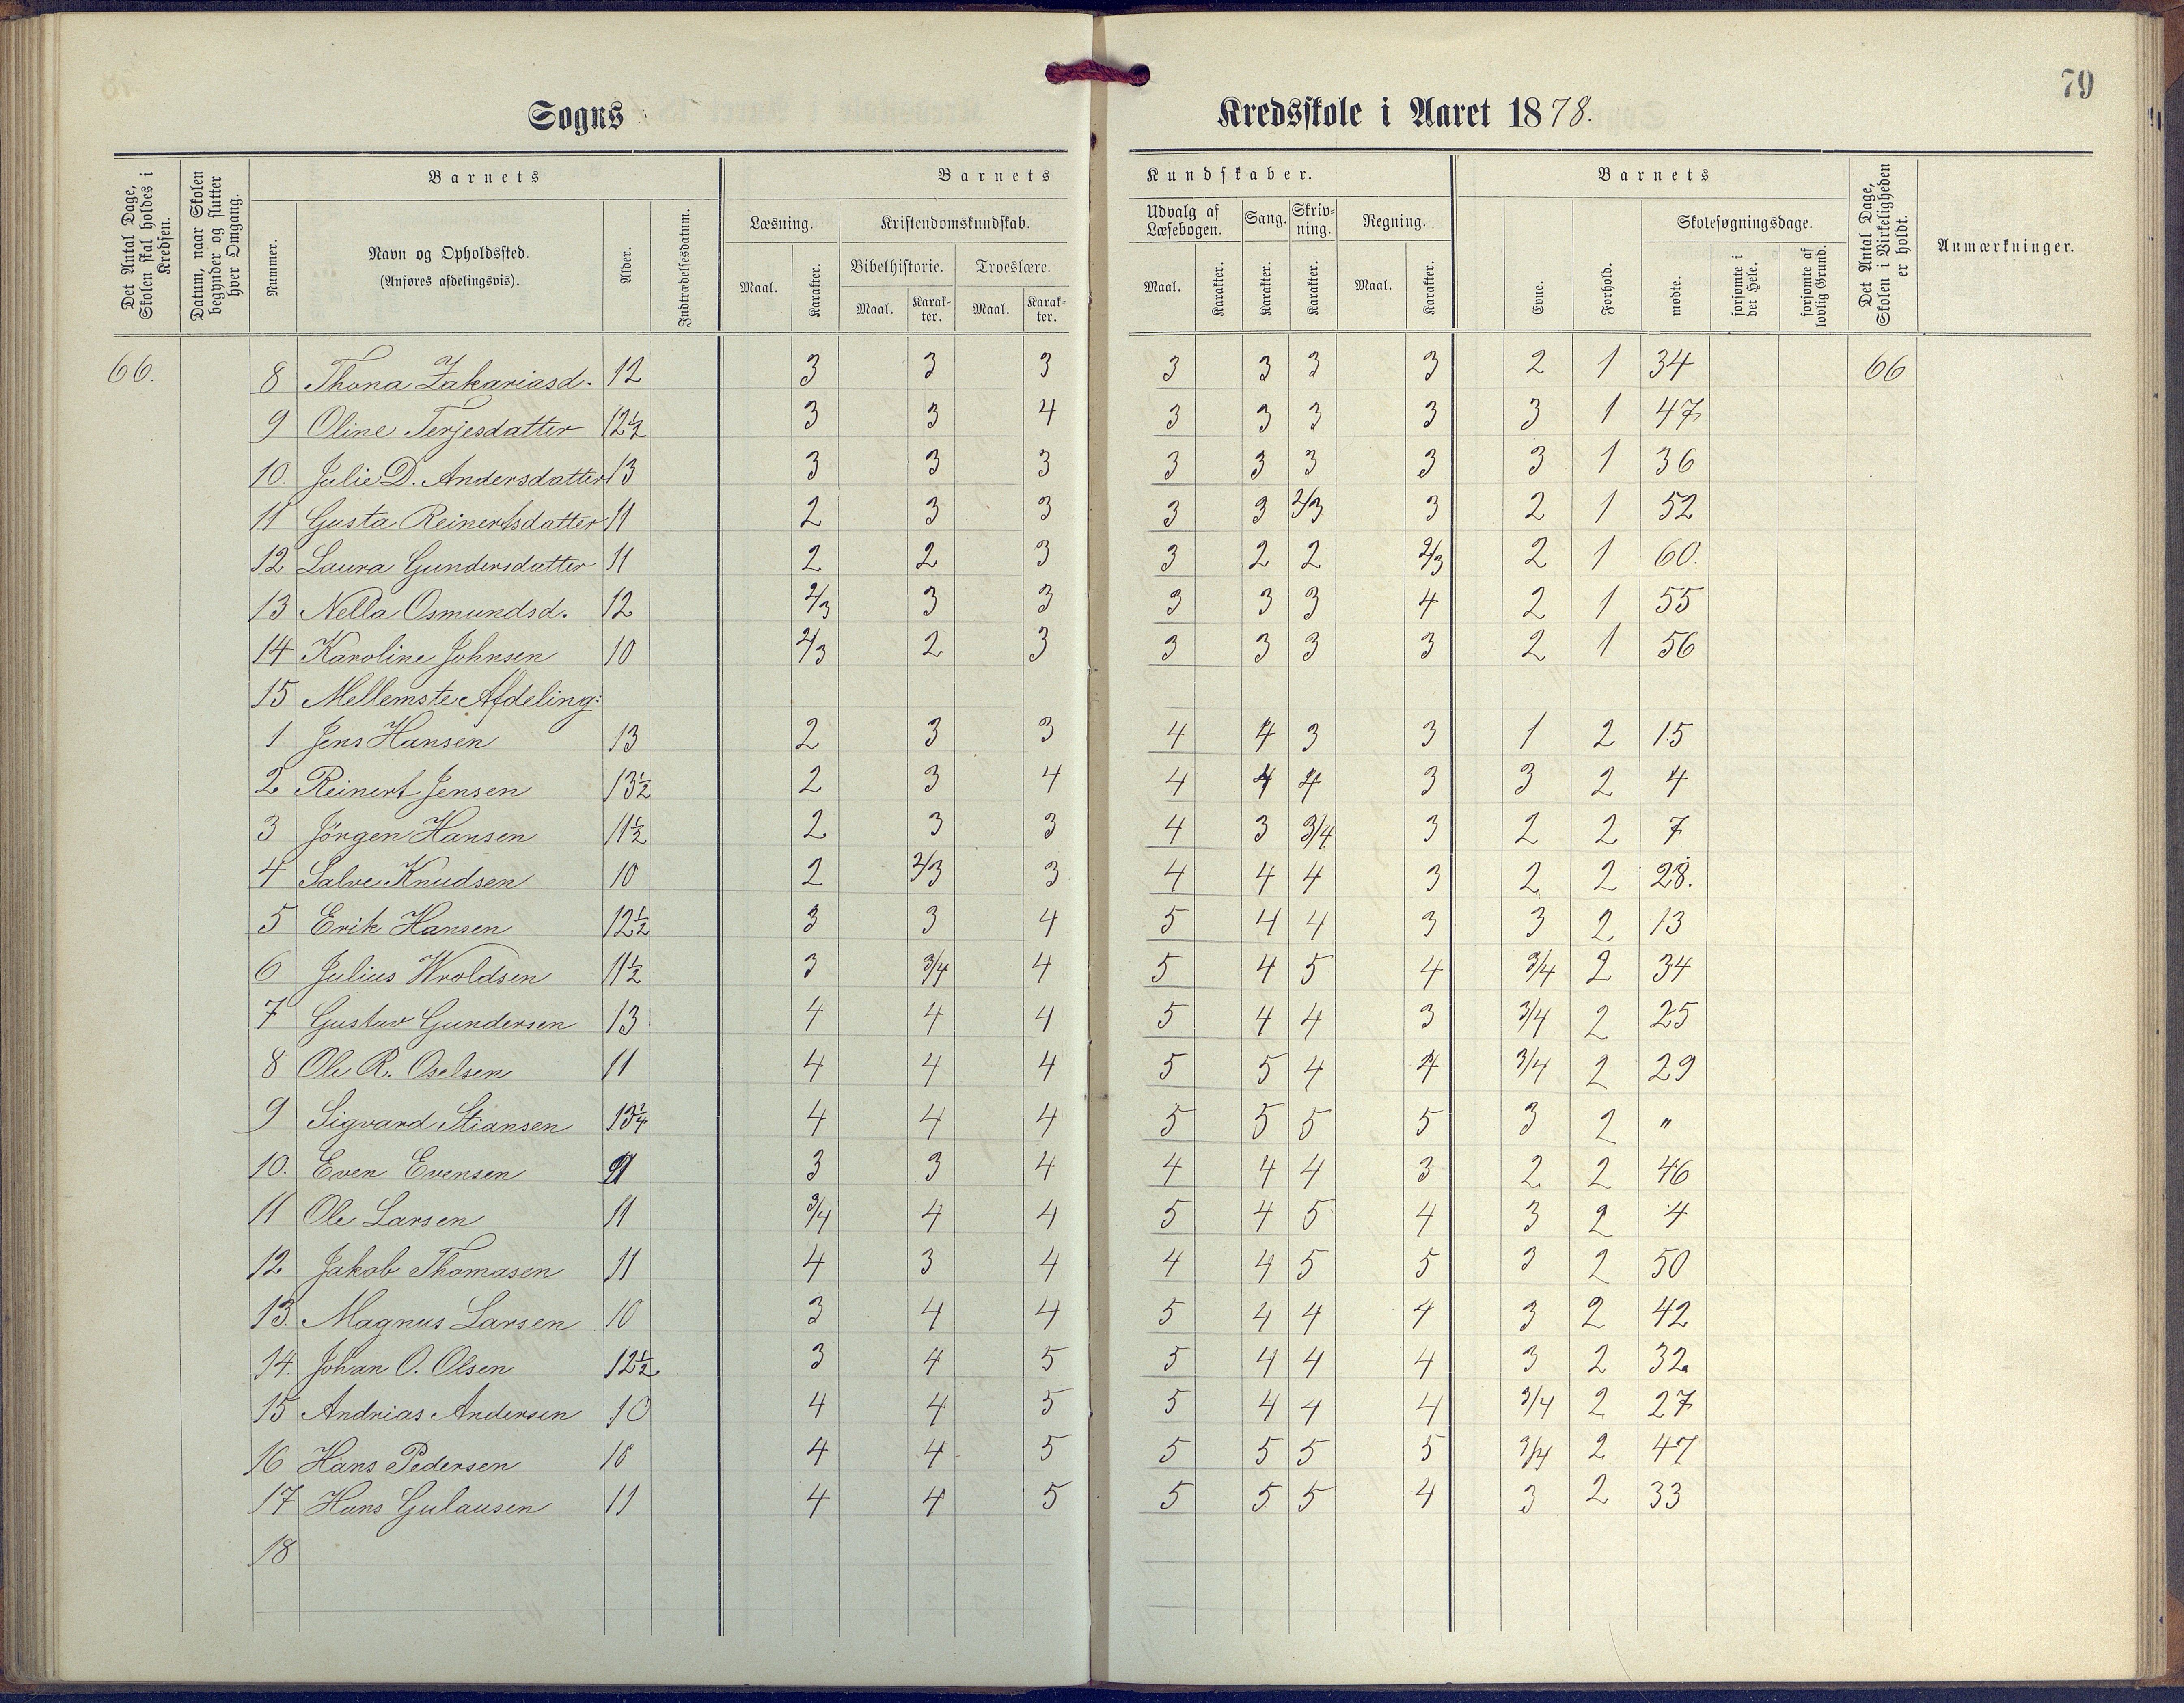 79
Sogns Kredsskole i Aaret 1878.
Det Antal Dage, Skolen skal holdes i Kredsen.
Datum, naar Skolen begynder og slutter hver Omgang.
Barnets Barnets Kundskaber. Barnets
Nummer. Navn og Opholdssted. (Anføres afdelingsvis). Alder. Indtrædelsesdatum.
Læsning. Kristendomskundskab. Udvalg af Læsebogen. Sang. Skrivning. Regning. Skolesøgningsdage.
Bibelhistorie. Troeslære.
Maal. Karakter. Maal. Karakter. Maal. Karakter. Maal. Karakter. Karakter. Karakter. Maal. Karakter. Evne. Forhold. mødte. forsømte i det Hele. forsømte af lovlig Grund.
Det Antal Dage, Skolen i Virkeligheden er holdt.
Anmærkninger.
66. 8 Thona Zakariasd. 12 3 3 3 3 3 3 3 2 1 34 66
9 Oline Terjesdatter 12½ 3 3 4 3 3 3 3 3 1 47
10. Julie D. Andersdatter 13 3 3 3 3 3 3 3 3 1 36
11 Gusta Reinertsdatter 11 2 3 3 3 3 2/3 3 2 1 52
12 Laura Gundersdatter 11 2 2 3 3 2 2 2/3 2 1 60.
13 Nella Osmundsd. 12 2/3 3 3 3 3 3 4 2 1 55
14 Karoline Johnsen 10 2/3 2 3 3 3 3 3 2 1 56
15 Mellemste Afdeling:
1 Jens Hansen 13 2 3 3 4 4 3 3 1 2 15
2 Reinert Jensen 13½ 2 3 4 4 4 4 3 3 2 4
3 Jörgen Hansen 11½ 2 3 3 4 3 3/4 3 2 2 7
4 Salve Knudsen 10 2 2/3 3 4 4 4 3 2 2 28.
5 Erik Hansen 12½ 3 3 4 5 4 4 3 3 2 13
6 Julius Wroldsen 11½ 3 3/4 4 5 4 5 4 3/4 2 34
7 Gustav Gundersen 13 4 4 4 5 4 4 3 3/4 2 25
8 Ole R. Oselsen 11 4 4 4 5 5 4 4 3/4 2 29
9 Sigvard Stiansen 13¼ 4 4 4 5 5 5 5 3 2 "
10. Even Evensen 3 3 4 4 4 4 3 2 2 46
11 Ole Larsen 11 3/4 4 4 5 4 5 4 3 2 4
12 Jakob Thomasen 11 4 3 4 4 4 5 5 3 2 50
13. Magnus Larsen 10 3 4 4 5 4 4 4 3 2 42
14. Johan O. Olsen 12½ 3 4 5 5 4 4 4 3 2 32
15 Andrias Andersen 10 4 4 5 5 4 4 4 3/4 2 27
16 Hans Pedersen 10 4 4 5 5 5 5 5 3/4 2 47
17 Hans Gulausen 11 4 4 5 5 5 5 4 3 2 33
18